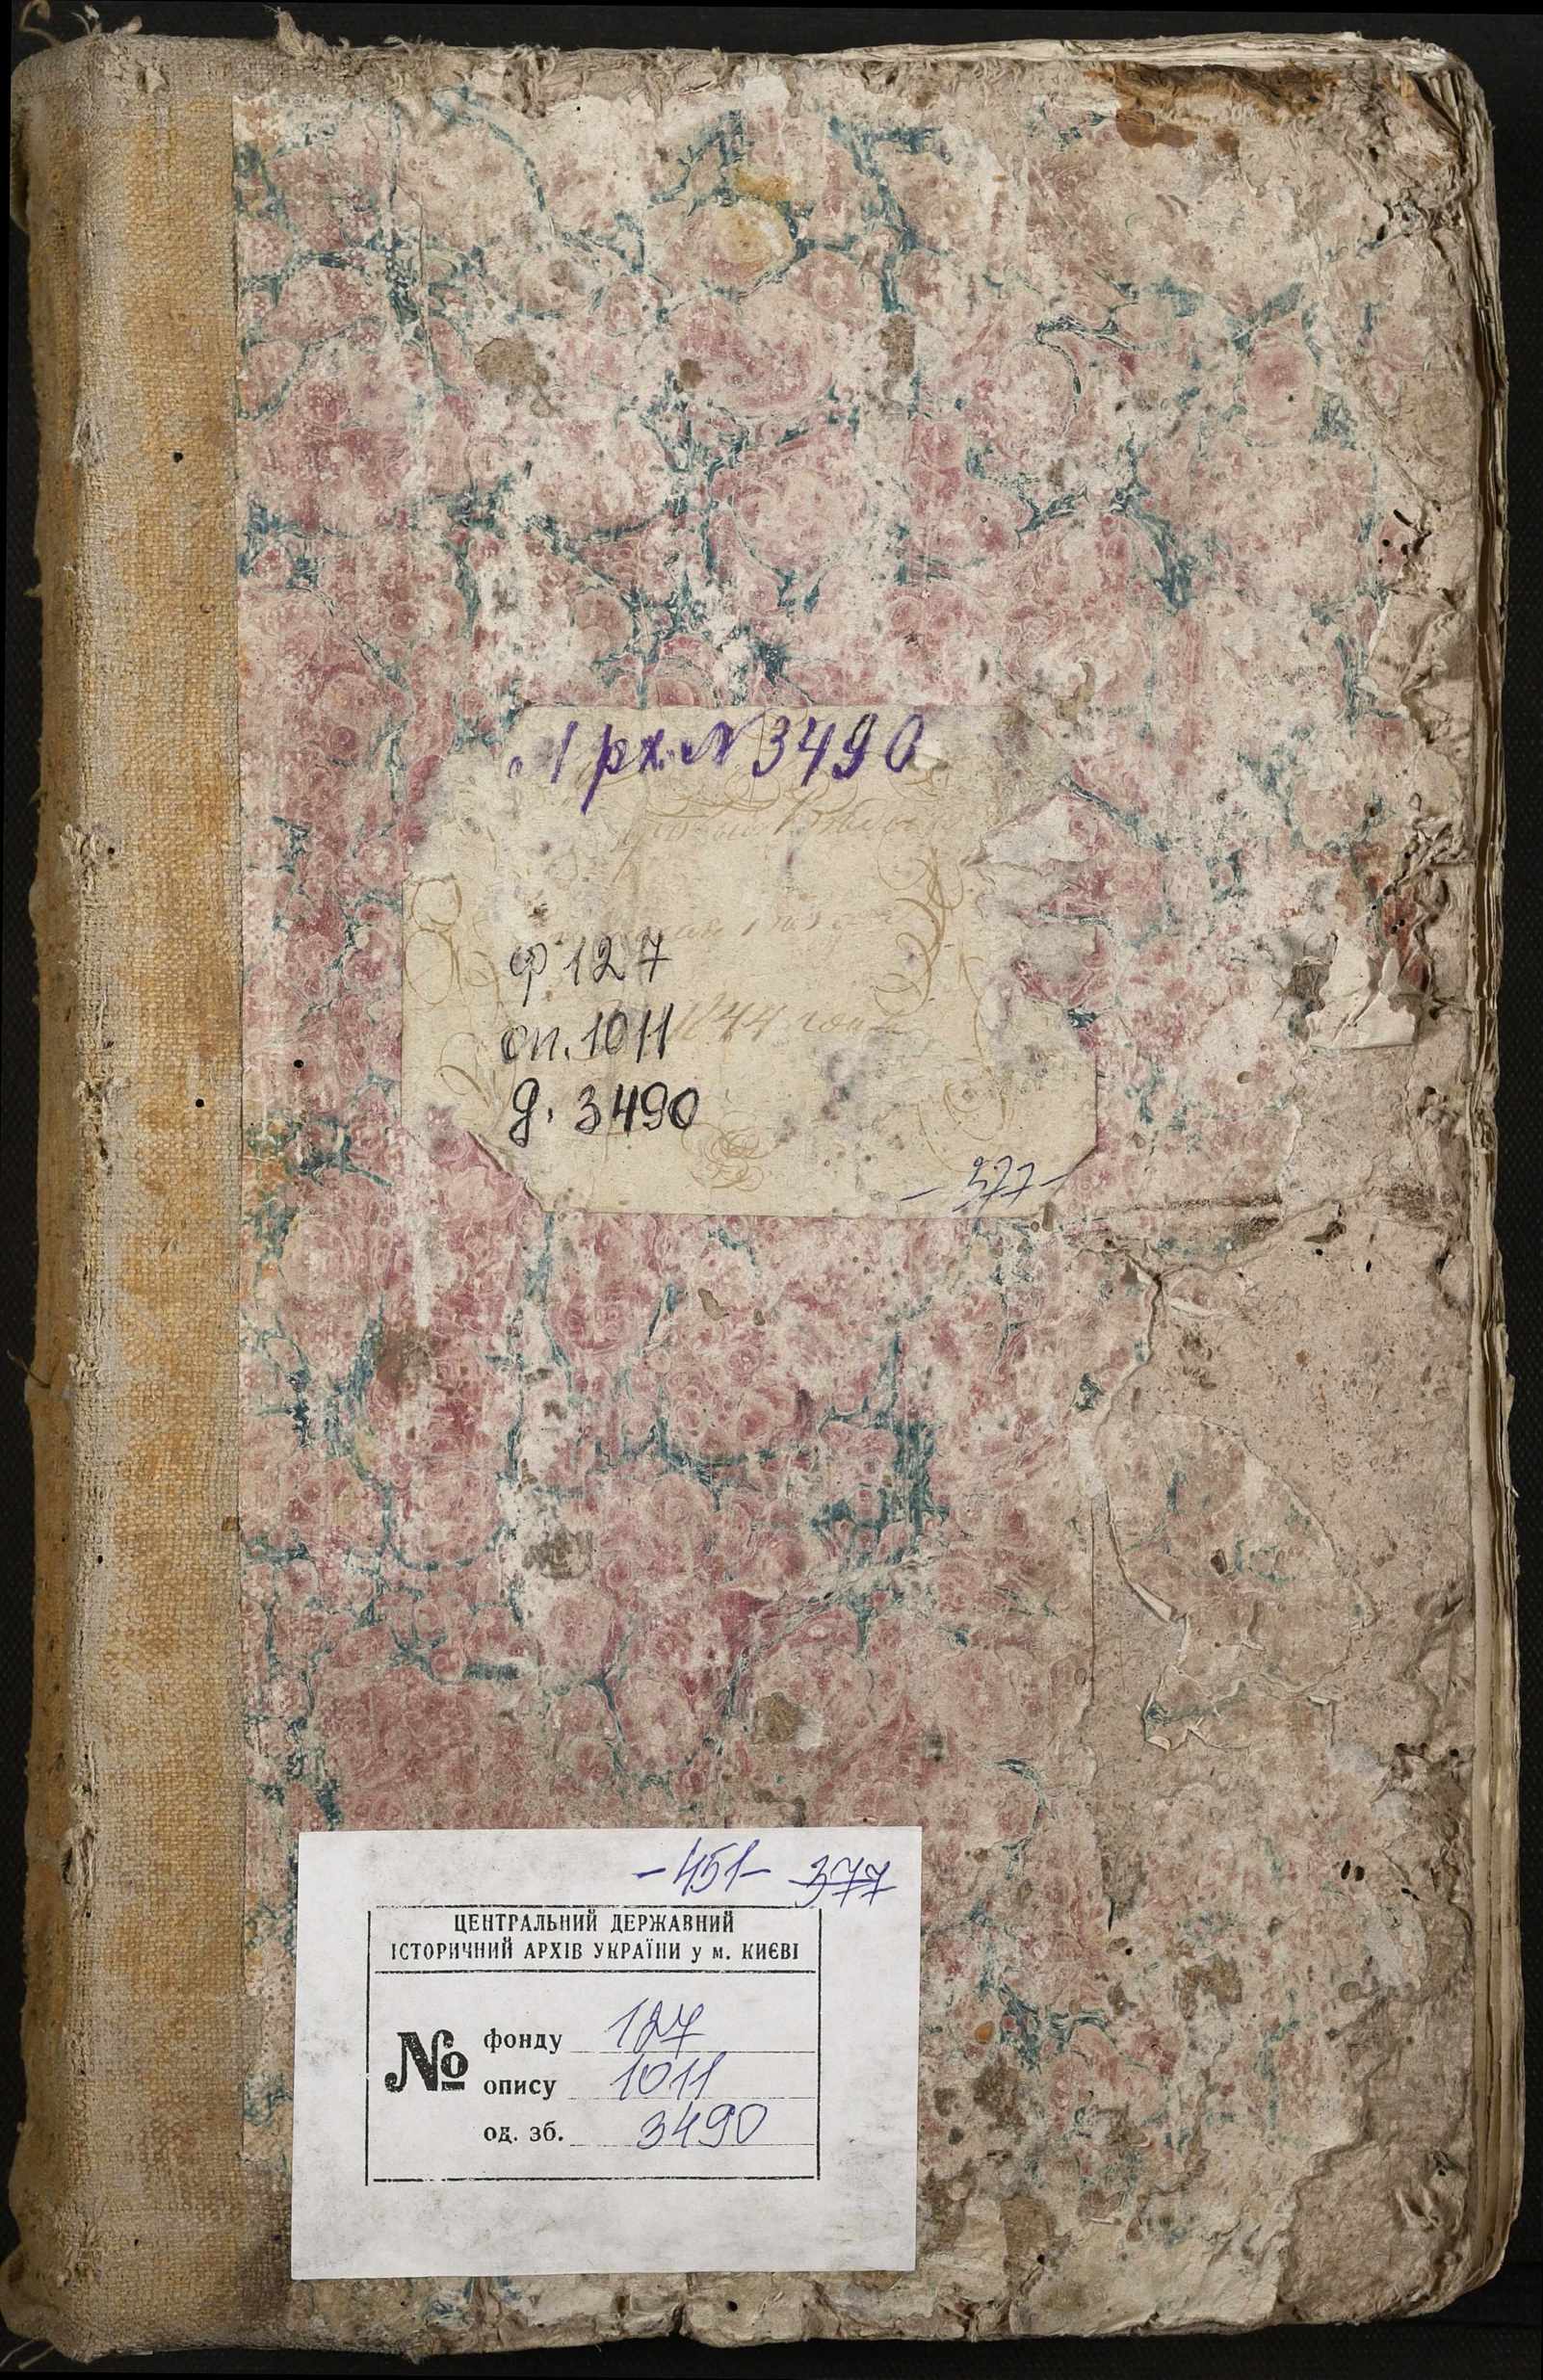 Арх. № 3490
ф 127
1844 года
оп. 1011
д. 3490
- 377 -
- 451 - 377
ЦЕНТРАЛЬНИЙ ДЕРЖАВНИЙ
ІСТОРИЧНИЙ АРХІВ УКРАЇНИ у м. КИЄВІ
№
фонду 127
опису 1011
од. зб. 3490